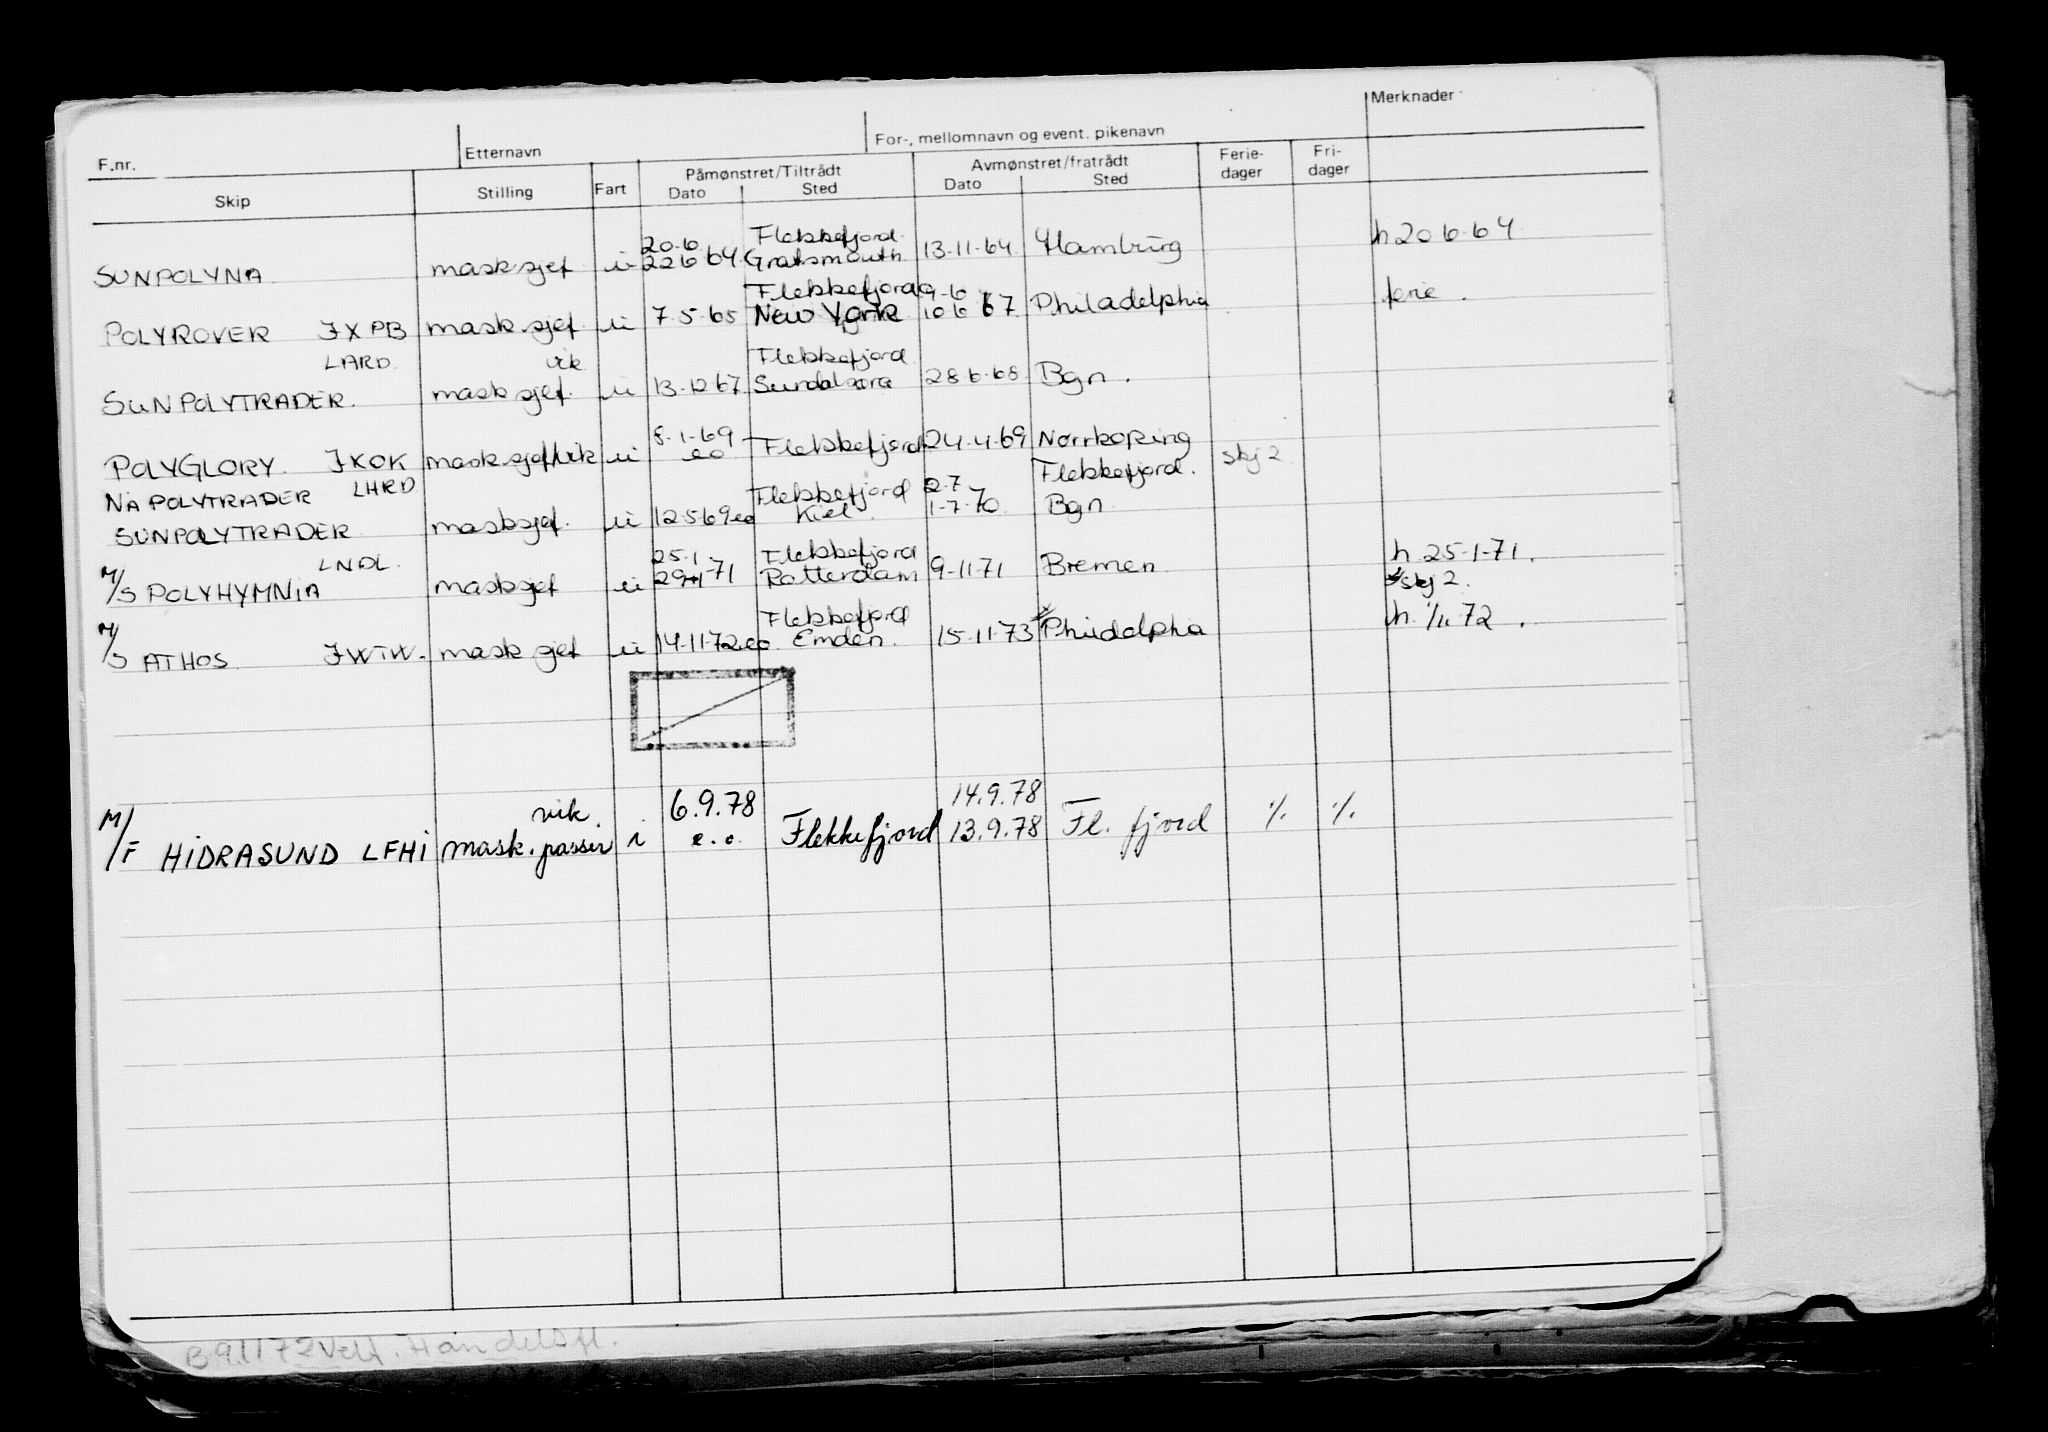 F.nr. Etternavn For-, mellomnavn og event. pikenavn Merknader
Skip Stilling Fart Påmønstret/Tiltrådt Avmønstret/fratrådt Ferie- dager Fri- dager
Dato Sted Dato Sted
20-6 Flekkefjord
SUNPOLYNA mask sjef u 22 6 64 Gratsmouth 13-11-64 Hamburg h 20 6-64
Flekkefjord 9-6
POLYROVER JXPB mask sjef u 7-5-65 New York 10 6 67 Philadelphia ferie.
LARD. vik Flekkefjord
SUNPOLYTRADER. mask sjef u 13-12 67 Sundalsøra 28 6-68 Bgn.
8-1-69
POLYGLORY JXOK mask sjef vik u eo Flekkefjord 24-4-69 Norrkoping skj 2
NÅ POLYTRADER LHRD Flekkefjord 2-7 Flekkefjord.
SUNPOLYTRADER masksjef. u 12-5 69 eo Kiel. 1-7-70 Bgn
LNDL. 25-1 Flekkefjord h 25-1-71.
M/S POLYHYMNIA masksjef u 29-1-71 Rotterdam 9-11-71 Bremen skj 2.
Flekkefjord
M/S ATHOS JWTW. mask sjef u 14-11 72 eo. Emden. 15-11-73 Phildelpha h. 1/11 72.
vik. 6.9.78 14.9.78
M/F HIDRASUND LFHI mask. passer i e.o. Flekkefjord 13.9.78 Fl. fjord ./. ./.
B 9.11 72 Velf. Handelsfl.